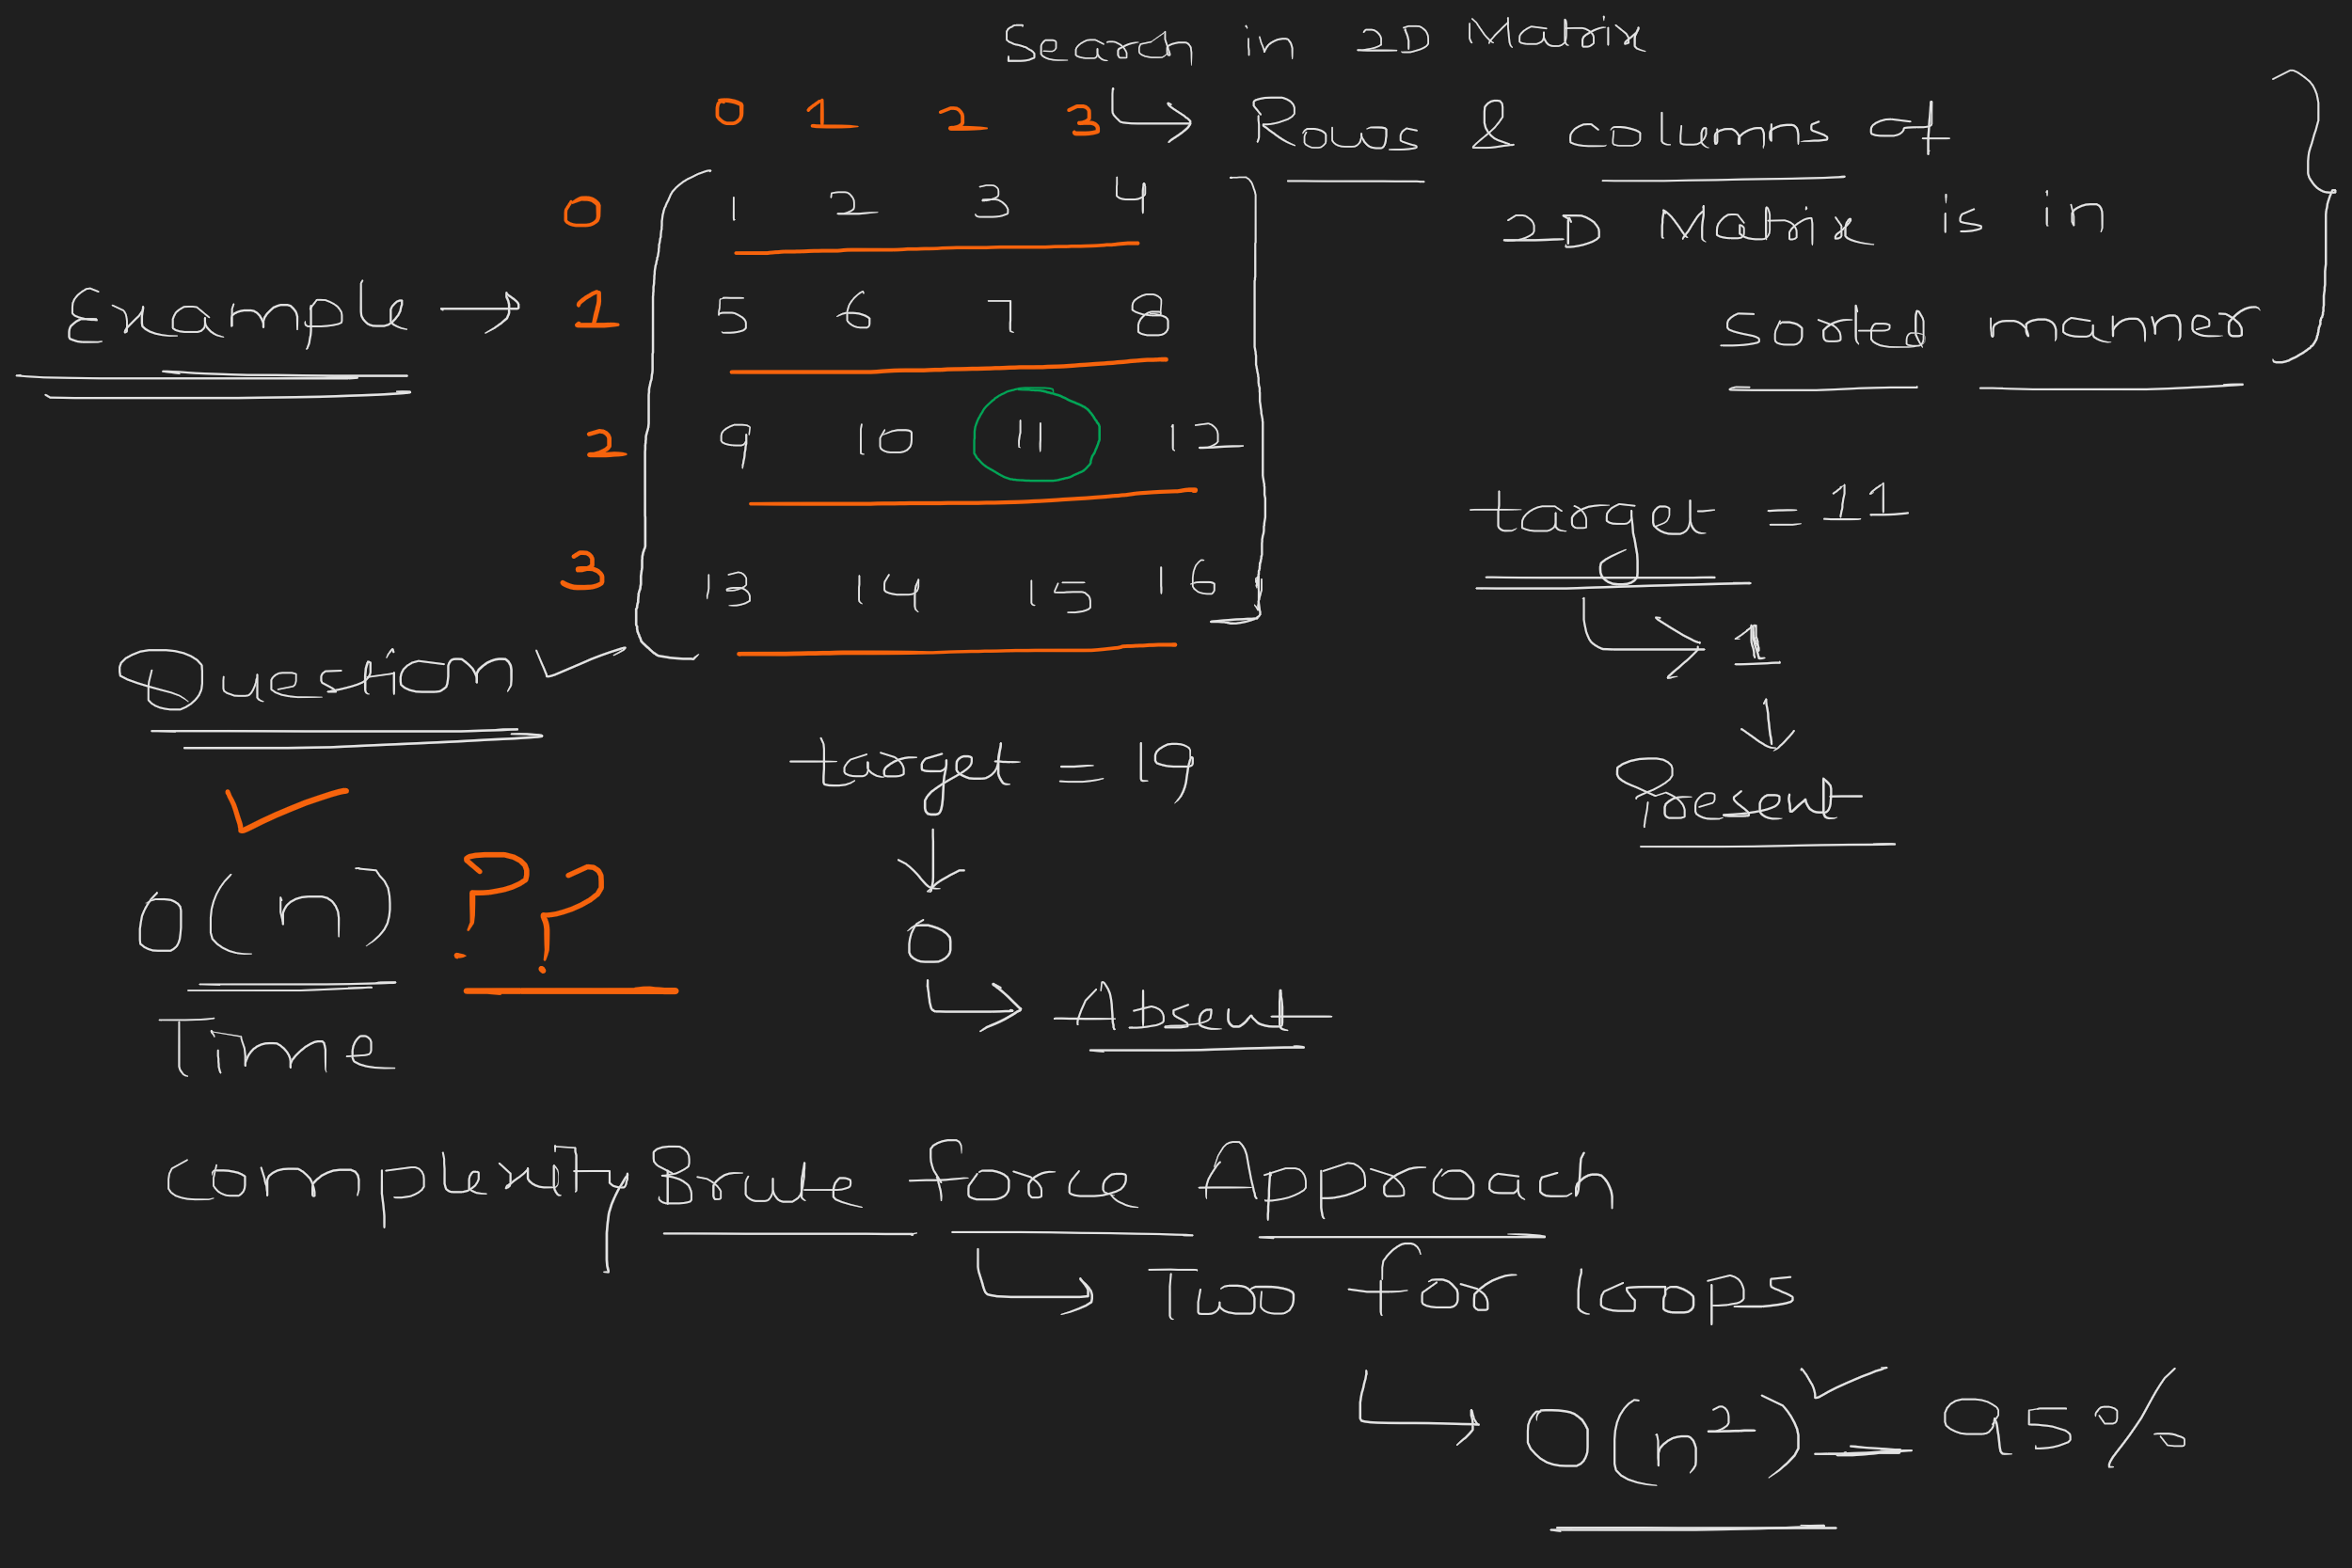 Search in 2D Matrix
0 1 2 3
Rows & columns of
2D Matrix is in
sorted manner
Example → 
0 1 2 3 4
1 5 6 7 8
2 9 10 11 12
3 13 14 15 16
target = 11
1
Present
Question
target = 19
0
Absent
O(n) ??
Time
complexity
Brute force Approach
Two for loops
O(n²) = 95%